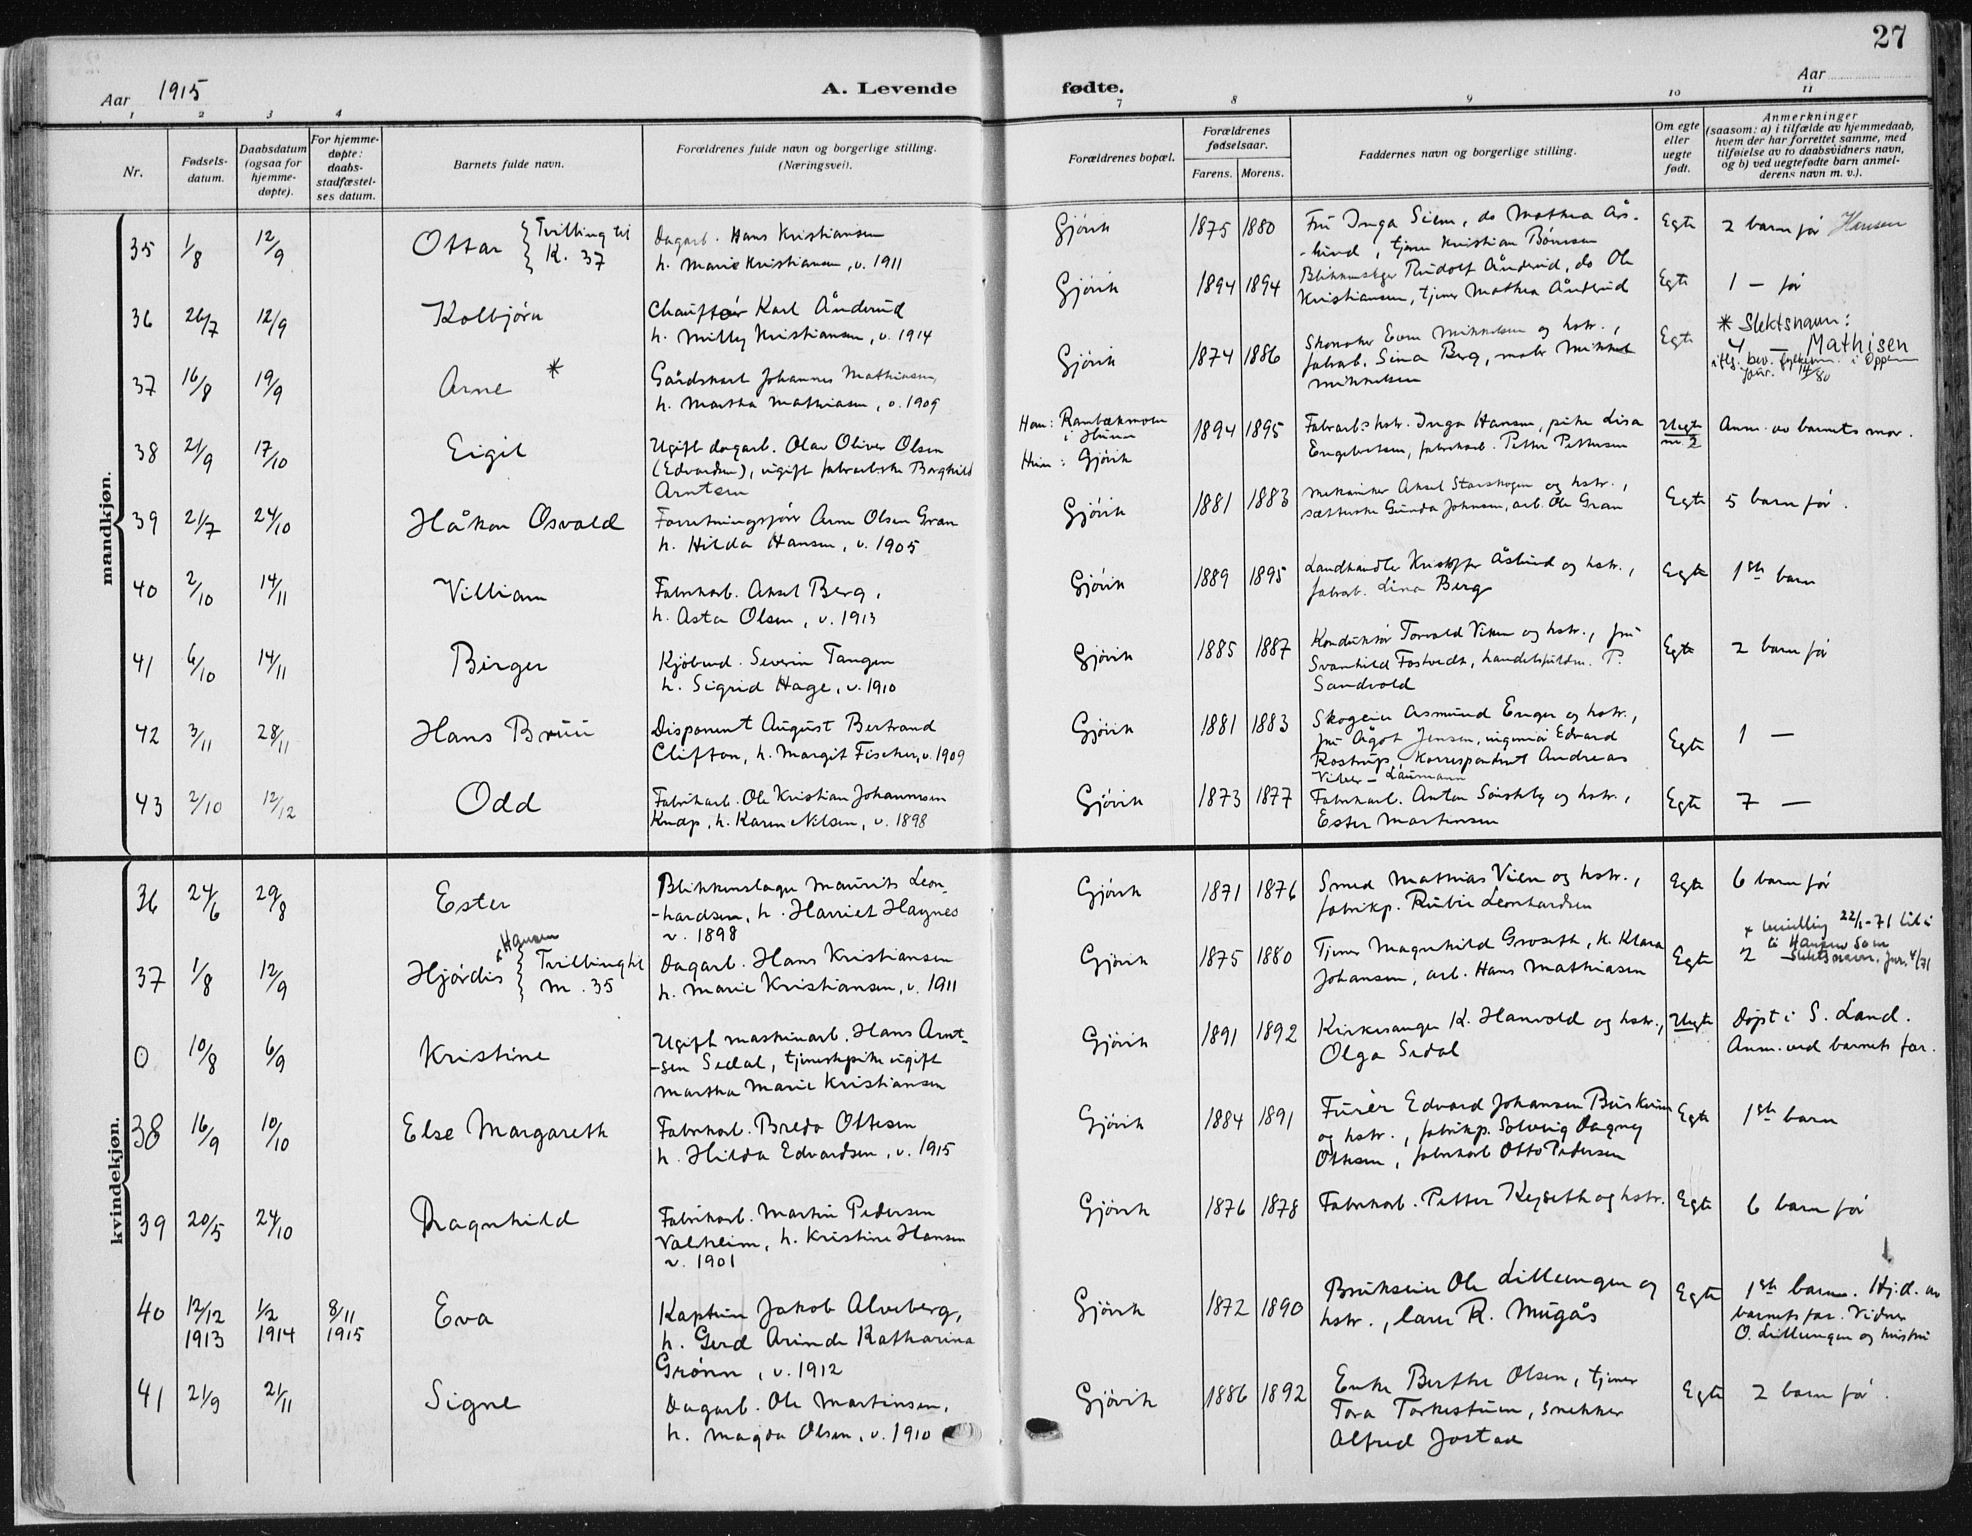 27
Aar 1915
A. Levende fødte.
Aar
1 2 3 4 7 8 9 10 11
Nr.
Fødsels-
datum.
Daabsdatum
(ogsaa for
hjemme-
døpte).
For hjemme-
døpte:
daabs-
stadfæstel-
ses datum.
Barnets fulde navn.
Forældrenes fulde navn og borgerlige stilling.
(Næringsvei).
Forældrenes bopæl.
Forældrenes
fødselsaar.
Farens. Morens.
Faddernes navn og borgerlige stilling.
Om egte
eller
uegte
født.
Anmerkninger
(saasom: a) i tilfælde av hjemmedaab,
hvem der har forrettet samme, med
tilføielse av to daabsvidners navn,
og b) ved uegtefødte barn anmel-
derens navn m. v.).
mandkjøn.
35 1/8 12/9 Ottar Tvilling til
K. 37
Dagarb. Hans Kristiansen
h. Marie Kristiansen, v. 1911
Gjövik 1875 1880
Fru Inga Siem, do Mathea Ås-
-lund, tjener Kristian
Egte 2 barn før Hansen
36 26/7 12/9 Kolbjørn
Chauffør Karl Ånderud
h. Milly Kristiansen, v. 1914
Gjövik 1894 1894
Rudolf Ånderud, do Ole
Kristiansen, tjener Mathea Ånderud
Egte 1 — før
37 16/8 19/9 Arne *
Gårdskarl Johannes Mathiasen,
h. Martha Mathiasen, v. 1909
Gjövik 1874 1886
Skomaker Even Mikkelsen og hstr.,
fabarb. Sina Berg, maler Mikkel
Mikkelsen
Egte * Slektsnavn:
4 — Mathisen
14/80
38 21/9 17/10 Eigil
Ugift dagarb. Olav Oliver Olsen
(Edvardsen), ugift fabrarbske Borghild
Arntsen
Han: i Hunn
Hun: Gjövik
1894 1895
Inga Hansen, pike Lisa
Engebretsen, fabrikarb. Petter Pettersen
Uegte
nr. 2
Anm. av barnets mor.
39 21/7 24/10 Håkon Osvald
Forretningsfører Arne Olsen Gran
h. Hilda Hansen, v. 1905
Gjövik 1881 1883
Mekaniker Aksel Starskogen og hstr.,
sætterske Gunda Johnsen, arb. Ole Gran
Egte 5 barn før.
40 2/10 14/11 Villiam
Fabrikarb. Aksel Berg,
h. Asta Olsen, v. 1913
Gjövik 1889 1895
Landhandler Kristoffer Åslund og hstr.,
fabarb. Lina Berg
Egte 1ste barn
41 6/10 14/11 Birger
Kjöbmd. Severin Tangen
h. Sigrid Hage, v. 1910
Gjövik 1885 1887
Konduktör Torvald Viken og hstr., fru
Svanhild Fostvedt, handelsfuldm. P.
Sandvold
Egte 2 barn før
42 3/11 28/11 Hans Bruu
Disponent August Bertrand
Clifton, h. Margit Fischer, v. 1909
Gjövik 1881 1883
Skogeier Asmund Enger og hstr.,
fru Ågot Jensen, ingeniør Edvard
Rostrup, korrespondent Andreas
Egte 1 —
43 2/10 12/12 Odd
Fabrikarb. Ole Kristian Johannesen
Knap, h. Karen Nilsen, v. 1898
Gjövik 1873 1877
Fabrikarb. Anton og hstr.,
Ester Martinsen
Egte 7 —
kvindekjøn.
36 24/6 29/8 Ester
Blikkenslager Maurits Leon-
-hardsen, h. Harriet Haynes
v. 1898
Gjövik 1871 1876
Smed Mathias Vien og hstr.,
fabrikp. Rubie Leonhardsen
Egte 6 barn før
37 1/8 12/9 Hjördis Hansen Tvilling til
M. 35
Dagarb. Hans Kristiansen
h. Marie Kristiansen, v. 1911
Gjövik 1875 1880
Tjener Magnhild Groseth, k. Klara
Johansen, arb. Hans Mathiasen
Egte
22/1-71
til Hansen som
2 — slektsnavn, Jnr. 4/71
0 10/8 6/9 Kristine
Ugift maskinarb. Hans Arnt-
-sen Sedal, tjenestepike ugift
Martha Marie Kristiansen
Gjövik 1891 1892
Kirkesanger K. Hanvold og hstr.,
Olga Sedal
Uegte Döpt i S. Land.
Anm. ved barnets far.
38 16/9 10/10 Else Margareth
Fabrikarb. Bredo Ottesen
h. Hilda Edvardsen, v. 1915
Gjövik 1884 1891
Furér Edvard Johansen
og hstr., fabrikp. Solveig Dagny
Ottesen, fabrikarb Otto Pedersen
Egte 1ste barn
39 20/5 24/10 Ragnhild
Fabrikarb. Martin Pedersen
Valheim, h. Kristine Hansen
v. 1901
Gjövik 1876 1878
Fabrikarb. Petter Kejseth og hstr.
Egte 6 barn før
40 12/12
1913
1/2
1914
8/11
1915
Eva
Kaptein Jakob Alveberg,
h. Gerd Arinda Katharina
Grönn, v. 1912
Gjövik 1872 1890
Brukseier Ole Lilleengen og
hstr., lærer R. Mugås
Egte 1ste barn. Hj.d. av
barnets far. Vidner
O. Lilleengen og hustru
41 21/9 21/11 Signe
Dagarb. Ole Martinsen,
h. Magda Olsen, v. 1910
Gjövik 1886 1892
Enke Berthe Olsen, tjener
Tora Torkestuen, snekker
Alfred Jostad
Egte 2 barn før.